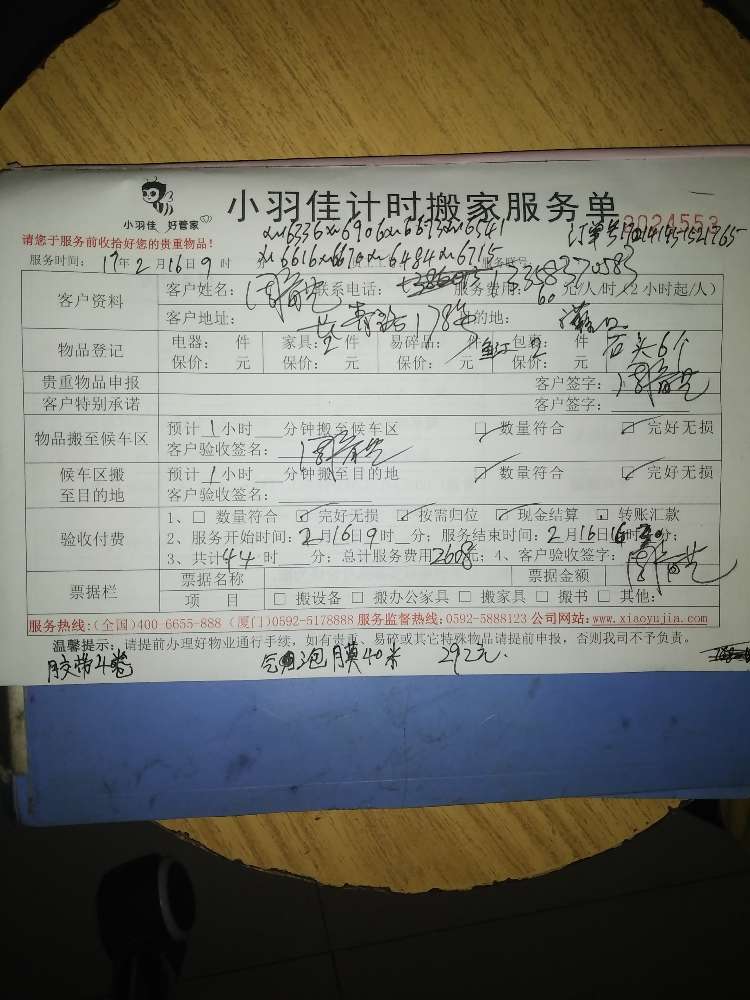 小羽佳 好管家
小羽佳计时搬家服务单
0024553
请您于服务前收拾好您的贵重物品!
xm6336 xm6906 xm6673 xm6541
订单号
服务时间: 17年2月16日9时 分
xm6616 xm6670 xm6484 xm6715
客户资料
客户姓名: 联系电话: 13358370583 服务费用: 60元/人/时(2小时起/人)
客户地址: 178号 目的地:
物品登记
电器: 件 家具: 件 易碎品: 件 包裹: 件 石头6个
保价: 元 保价: 元 保价: 元 保价: 元
贵重物品申报 客户签字:
客户特别承诺 客户签字:
物品搬至候车区
预计1小时 分钟搬至候车区 □ 数量符合 □ 完好无损
客户验收签名:
候车区搬至目的地
预计1小时 分钟搬至目的地 □ 数量符合 □ 完好无损
客户验收签名:
验收付费
1、□ 数量符合 □ 完好无损 □ 按需归位 □ 现金结算 □ 转账汇款
2、服务开始时间: 2月16日9时 分; 服务结束时间: 2月16日16时30分;
3、共计44时 分; 总计服务费用2608元; 4、客户验收签字:
票据栏
票据名称 票据金额
项 目 □ 搬设备 □ 搬办公家具 □ 搬家具 □ 搬书 □ 其他:
服务热线:(全国)400-6655-888 (厦门)0592-5178888 服务监督热线:0592-5888123 公司网站:www.xiaoyujia.com
温馨提示: 请提前办理好物业通行手续, 如有贵重、易碎或其它特殊物品请提前申报, 否则我司不予负责。
胶带4卷 膜40米 292元.